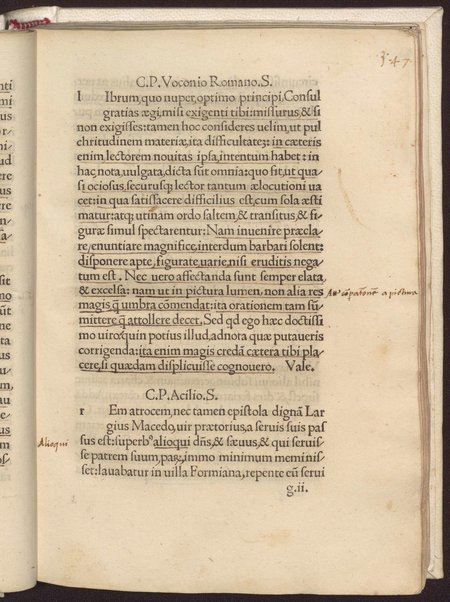 347
C.P. Voconio Romano.S.
l Ibrum, quo nuper, optimo principi, Consul
gratias ægi, misi exigenti tibi: missurus, & si
non exigisses: tamen hoc consideres uelim, ut pul
chritudinem materiæ, ita difficultatez: in cæteris
enim lectorem nouitas ipsa, intentum habet: in
hac nota, uulgata, dicta sūt omnia: quo fit, ut qua
si ociosus, securusq; lector tantum ælocutioni ua
cet: in qua satisfacere difficilius est, cum sola æsti
matur: atq; utinam ordo saltem, & transitus, & fi
guræ simul spectarentur: Nam inuenire præcla
re, enuntiare magnifice, interdum barbari solent:
disponere apte, figurate, uarie, nisi eruditis nega
tum est. Nec uero affectanda sunt semper elata,
& excelsa: nam ut in pictura lumen, non alia res
magis q̄ umbra cōmendat: ita orationem tam sū
mittere q̄ attollere decet. Sed qd ego hæc doctissi
mo uiro: quin potius illud, adnota quæ putaueris
corrigenda: ita enim magis credā cætera tibi pla
cere, si quædam displicuisse cognouero. Vale.
a pictura
C.P. Acilio.S.
r Em atrocem, nec tamen epistola dignā Lar
gius Macedo, uir prætorius, a seruis suis pas
sus est: superbꝰ alioqui dn̄s, & sæuus, & qui seruis
se patrem suum, paꝝ, immo minimum meminis
set: lauabatur in uilla Formiana, repente eū serui
Alioqui
g.ii.